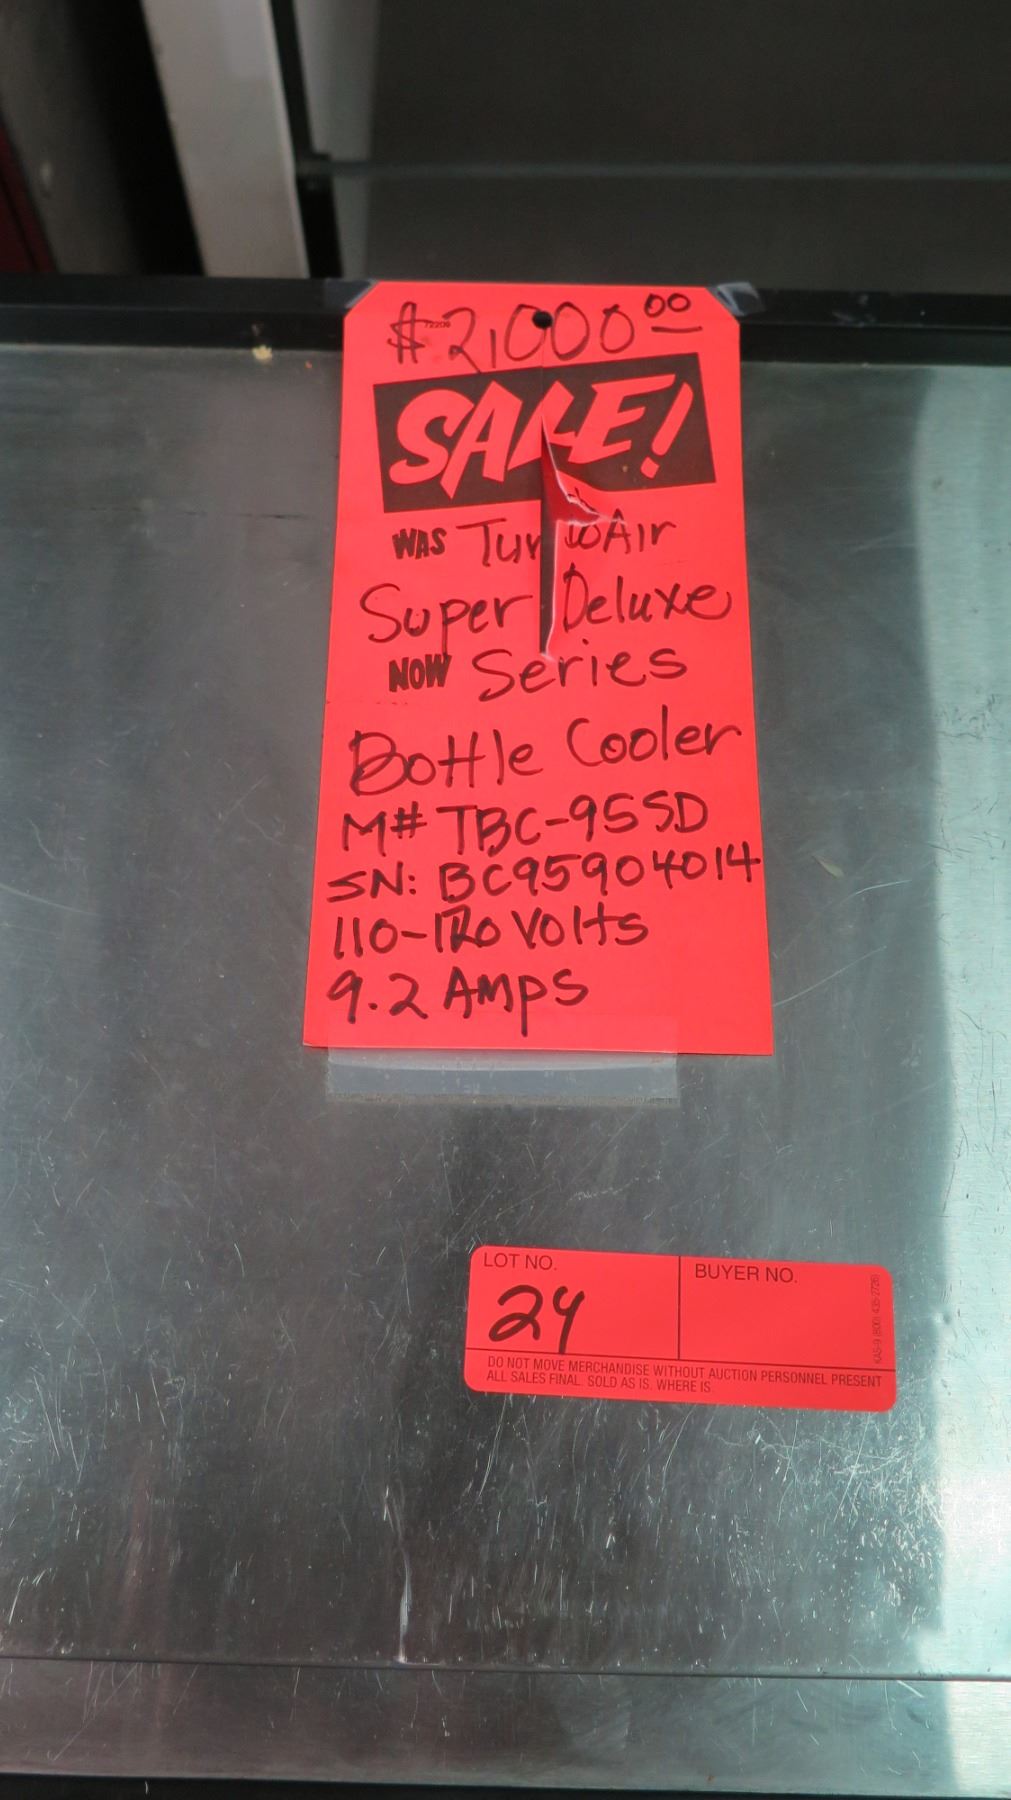 $2,000.00
SALE!
WAS TurboAir
Super Deluxe
NOW Series
Bottle Cooler
M# TBC-95SD
SN: BC95904014
110-120 Volts
9.2 Amps
LOT NO.
24
BUYER NO.
KAS-9 (800) 435-2726
DO NOT MOVE MERCHANDISE WITHOUT AUCTION PERSONNEL PRESENT
ALL SALES FINAL. SOLD AS IS. WHERE IS.